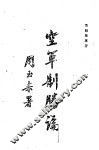 空軍制勝論
周至柔署